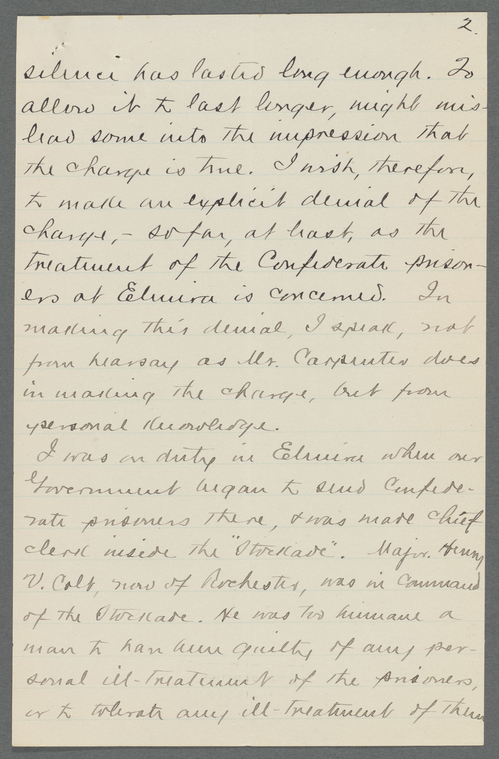 2.
silence has lasted long enough. To
allow it to last longer, might mis-
lead some into the impression that
the charge is true. I wish, therefore,
to make an explicit denial of the
charge, - so far, at least, as the
treatment of the Confederate prison-
ers at Elmira is concerned. In
making this denial, I speak, not
from hearsay as Mr. Carpenter does
in making the charge, but from
personal knowledge.
I was on duty in Elmira when our
Government began to send Confede-
rate prisoners there, & was made chief
clerk inside the "Stockade". Major. Henry
V. Colt, now of Rochester, was in command
of the Stockade. He was too humane a
man to have been guilty of any per-
sonal ill-treatment of the prisoners,
or to tolerate any ill-treatment of them